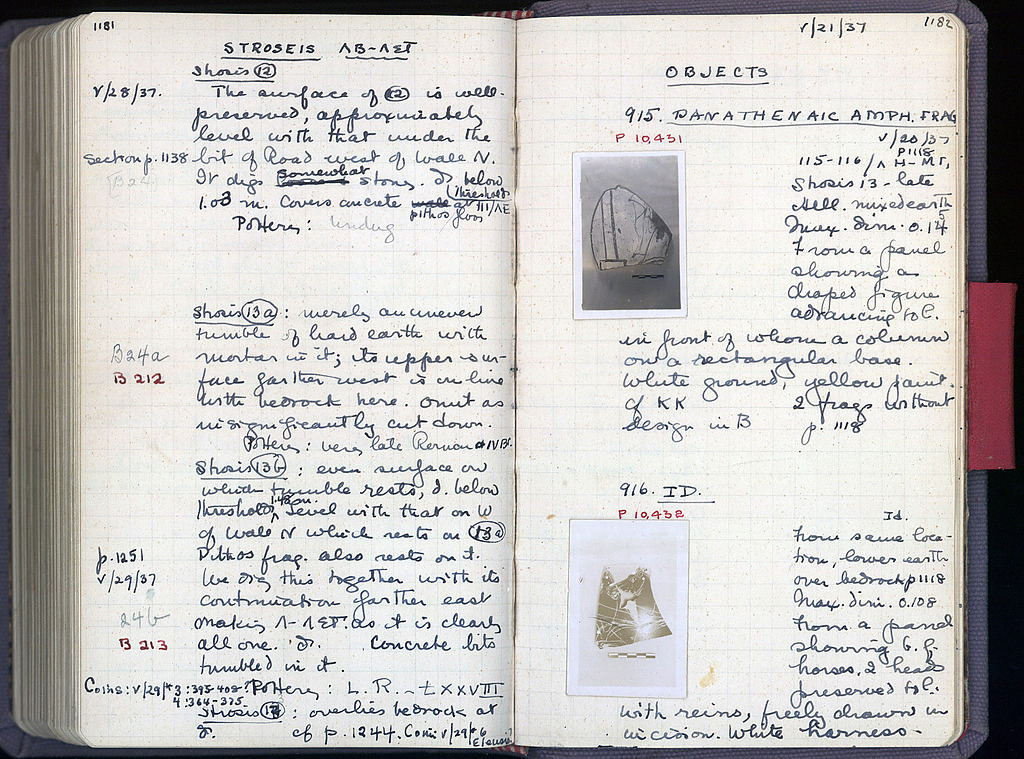 1181
STROSEIS ΛB-ΛΣT
Strosis 12
V/28/37. The surface of 12 is well-
preserved, approximately
level with that under the
Section p. 1138 bit of Road west of Wall N.
B24
It digs somewhat stony. d. below
threshold
1.03 m. Covers concrete at III/ΛE
pithos floor
Pottery: undug
Strosis 13a: merely an uneven
tumble of hard earth with
B24a mortar in it; its upper sur-
B 212 face farther west is in line
with bedrock here. Omit as
insignificantly cut down.
Pottery: very late Roman
Strosis 13b: even surface on
which tumble rests, d. below
threshold, 1.48 m. Level with that on W
of Wall N which rests on 13a
p. 1251 Pithos frag. also rests on it.
V/29/37 We dig this together with its
continuation farther east
24b making as it is clearly
B 213 all one. d. Concrete bits
tumbled in it.
Coins: V/29/37 3: 395-408? Pottery: L.R. -
4: 364-375.
Strosis: overlies bedrock at
d. cf p. 1244. Coin: V/29/37 6
1182
V/21/37
OBJECTS
915. PANATHENAIC AMPH. FRAG
P 10,431
V/20/37
p 1118
115-116/Λ H-MT,
Strosis 13 - late
Hell. mixed earth
Max. dim. 0.145
From a panel
showing a
draped figure
advancing to l.
in front of whom a column
on a rectangular base.
White ground, yellow paint.
cf KK 2 frags without
design in B p. 1118
916. ID.
P 10,432
Id.
From same loca-
tion, lower earth
over bedrock p 1118
Max. dim. 0.108
From a panel
showing b.f.
horses, 2 heads
preserved to l.
with reins, freely drawn in
incision. White harness-